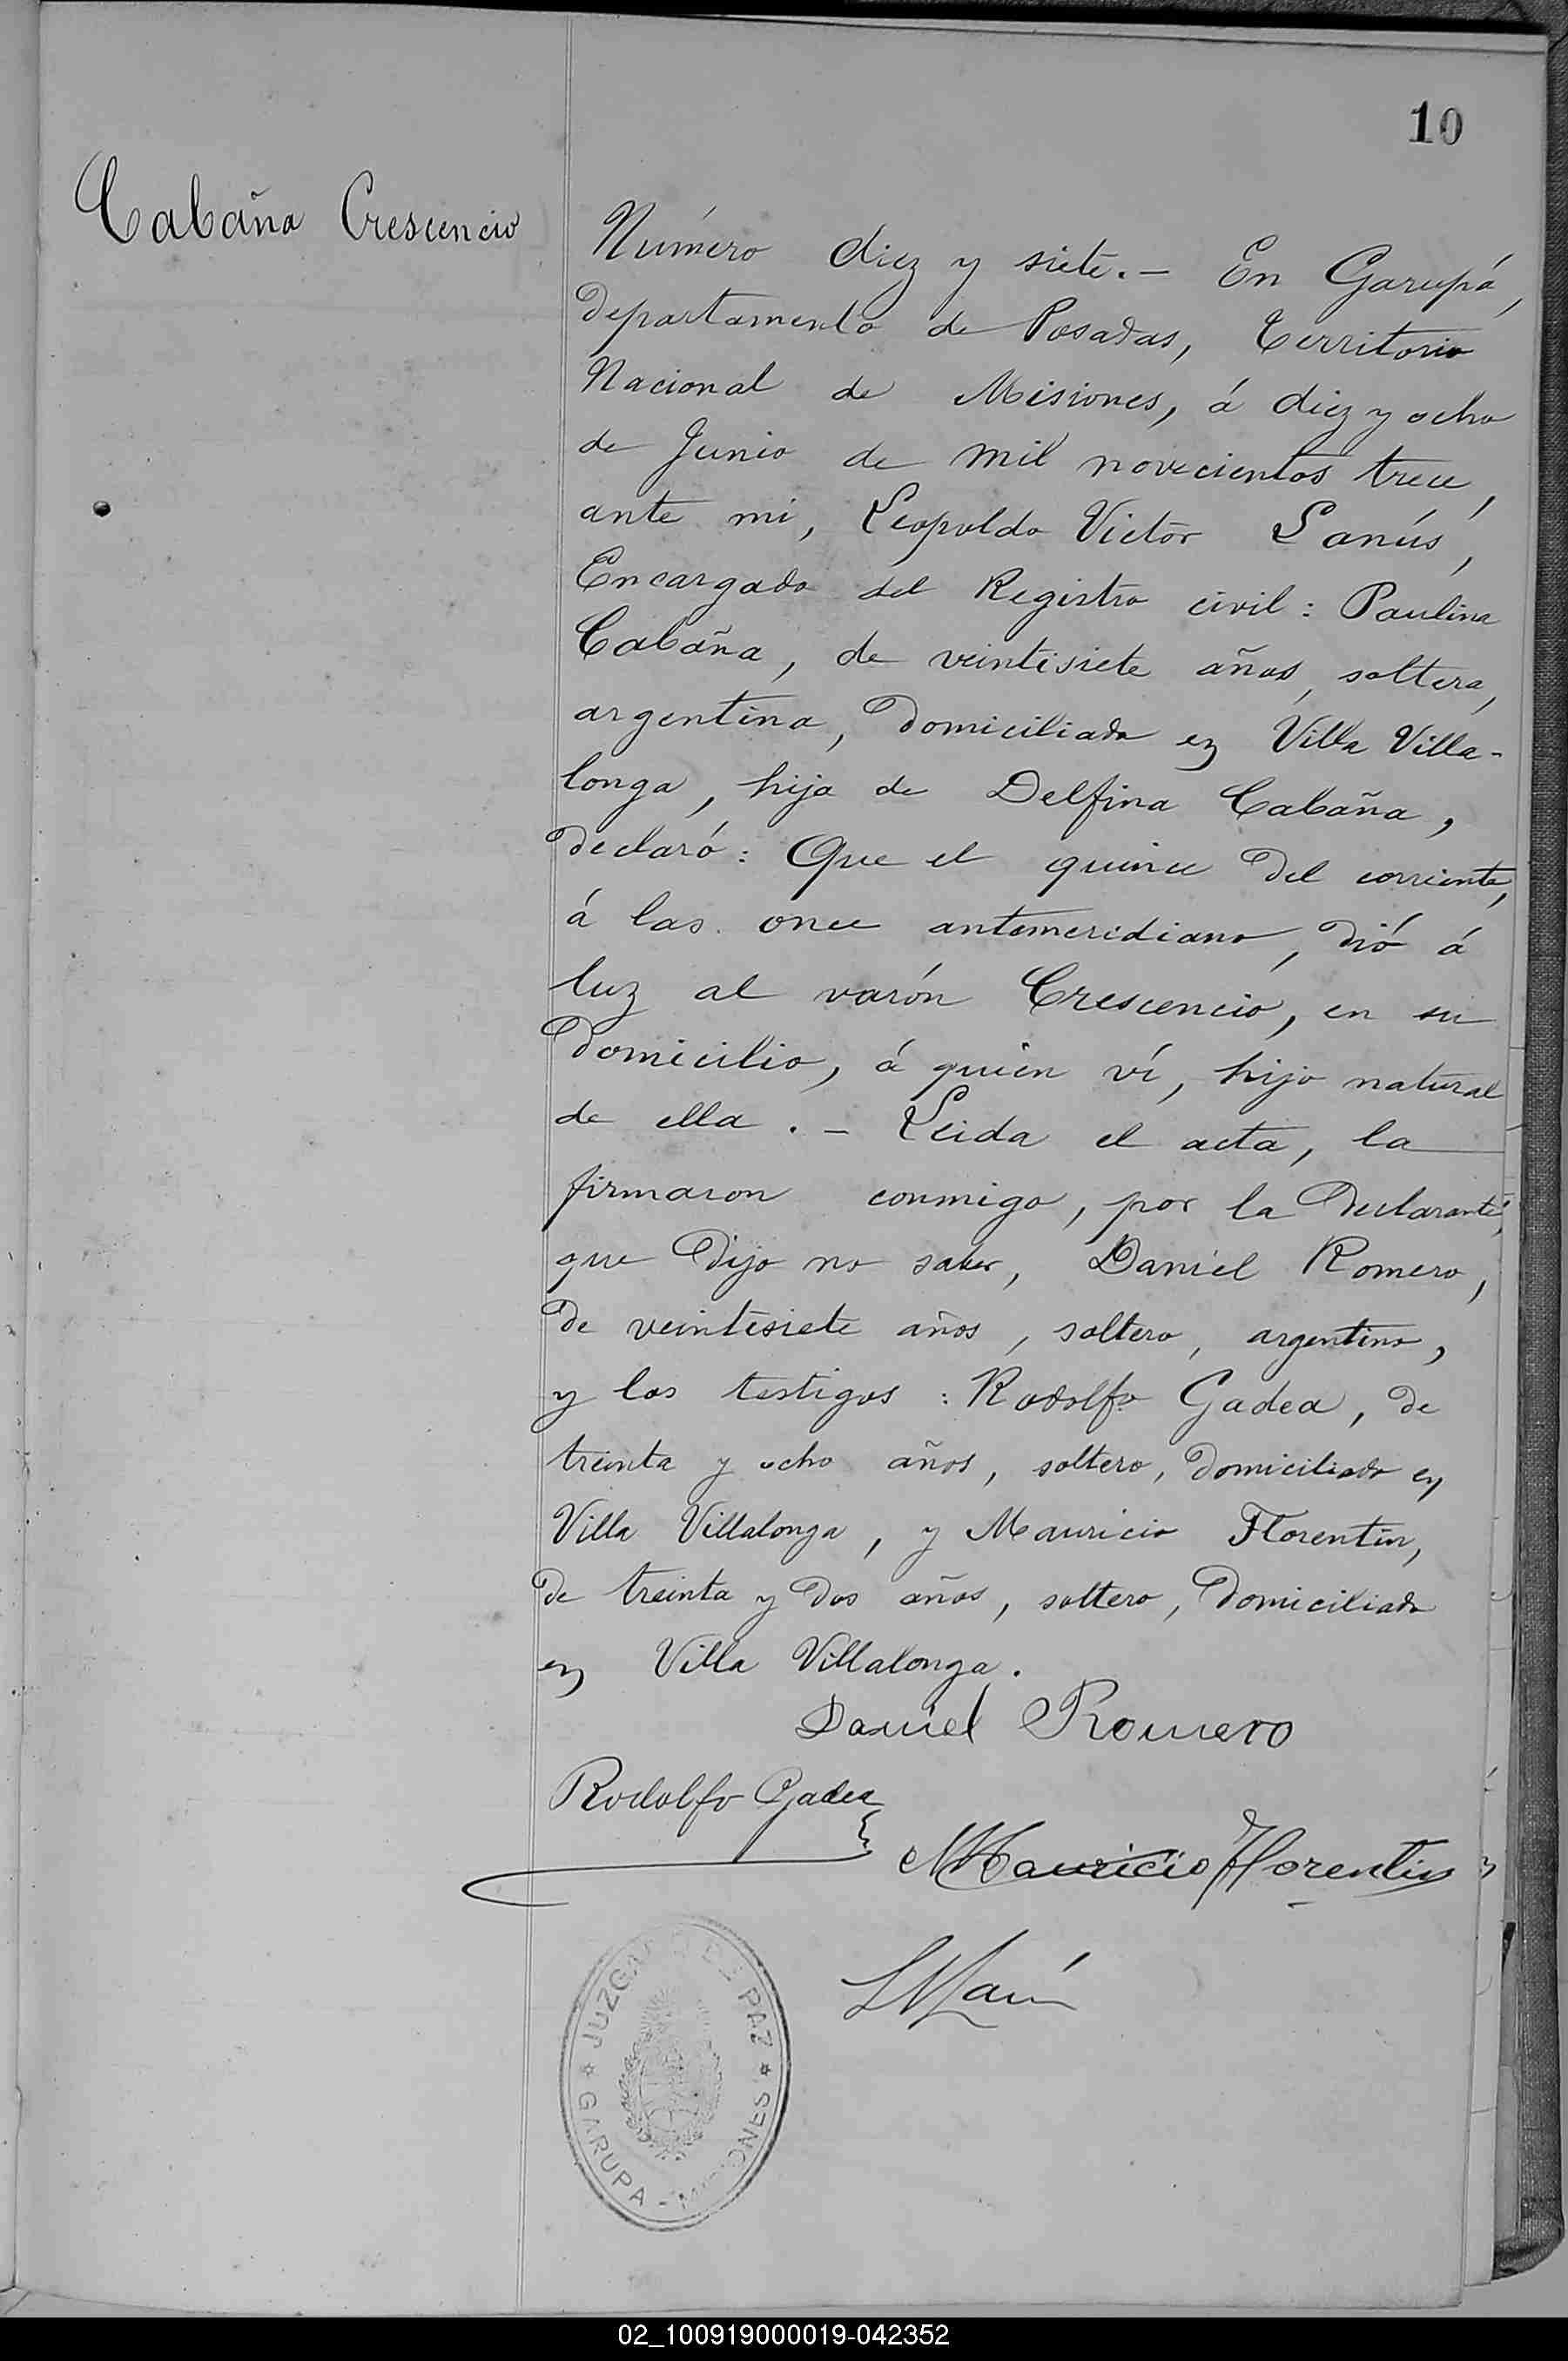 10
Cabaña Crescencio
Número diez y siete.— En Garupá,
departamento de Posadas, Territorio
Nacional de Misiones, á diez y ocho
de Junio de mil novecientos trece,
ante mi, Leopoldo Victor Lanús,
Encargado del Registro civil: Paulina
Cabaña, de veintisiete años, soltera,
argentina, domiciliada en Villa Villa-
longa, hija de Delfina Cabaña,
declaró: Que el quince del corriente,
á las once antemeridiano, dió á
luz al varón Crescencio, en su
domicilio, á quien ví, hijo natural
de ella.— Leida el acta, la
firmaron conmigo, por la declarante,
que dijo no saber, Daniel Romero,
de veintisiete años, soltero, argentino,
y los testigos: Rodolfo Gadea, de
treinta y ocho años, soltero, domiciliado en
Villa Villalonga, y Mauricio Florentin,
de treinta y dos años, soltero, domiciliado
en Villa Villalonga.
Daniel Romero
Rodolfo Gadea
Mauricio Florentin
JUZGADO DE PAZ
GARUPA - MISIONES
02_100919000019-042352